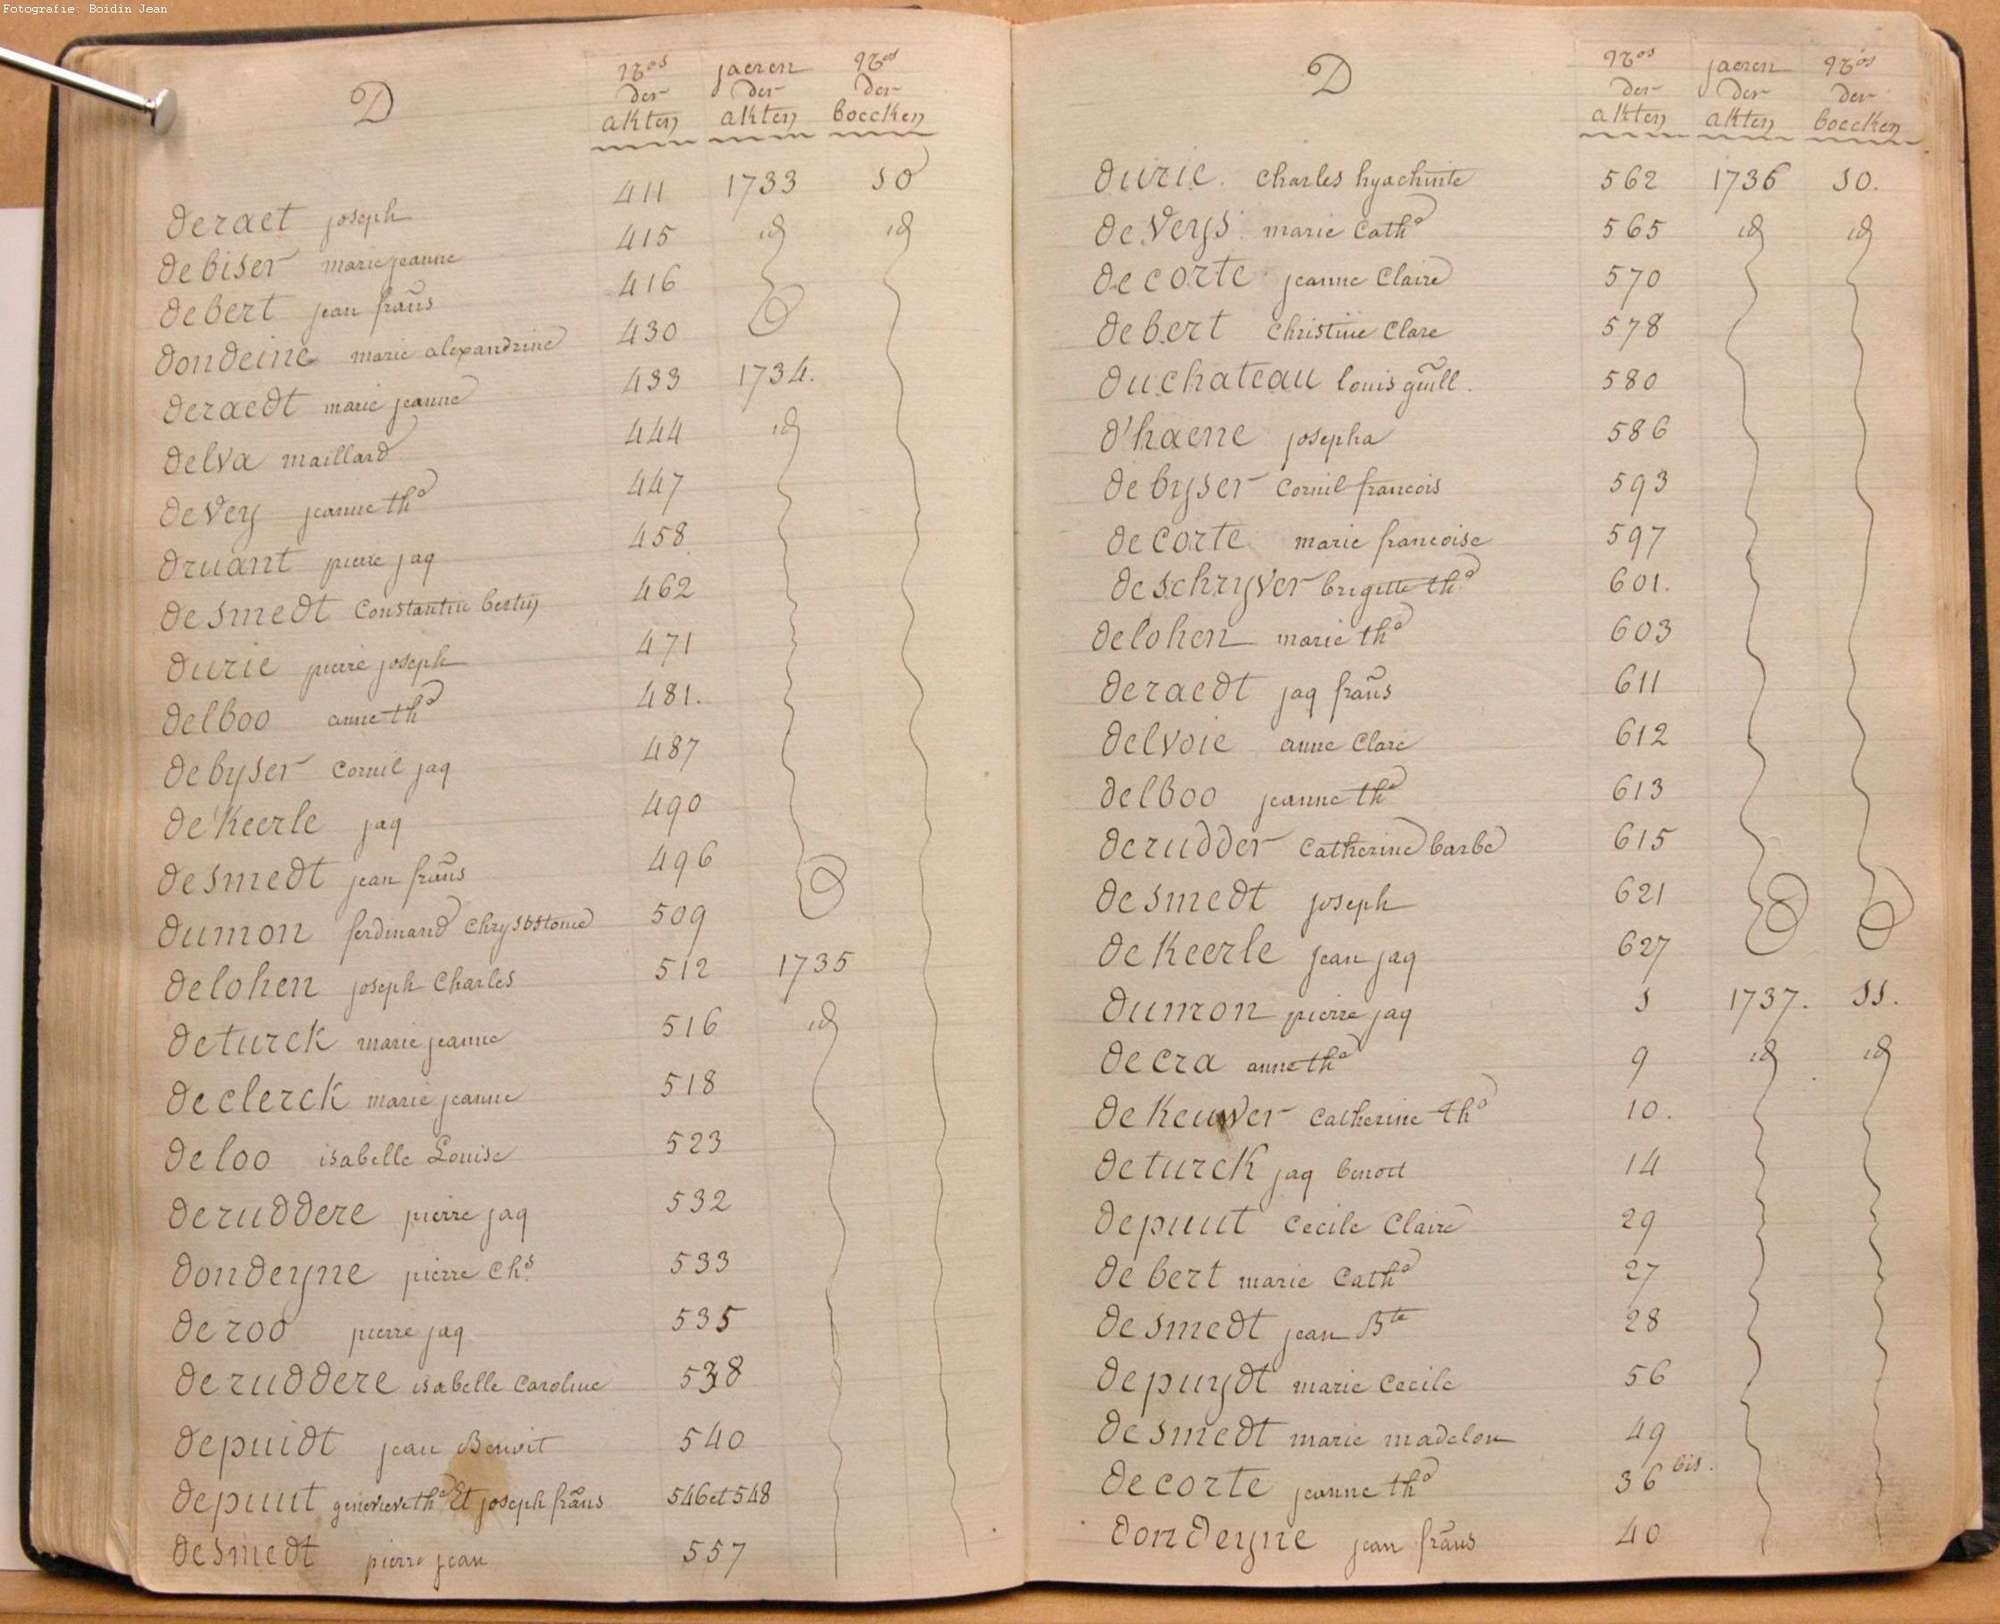 Fotografie: Boidin Jean
D
nros der akten jaeren der akten nros der boecken
deraet joseph 411 1733 10
debiser marie jeanne 415 id id
debert jean frans 416
dondeine marie alexandrine 430
deraedt marie jeanne 433 1734.
delva maillard 444 id
devey jeanne tha 447
druant pierre jaq 458
desmedt constantin bertin 462
durie pierre joseph 471
delboo anne tha 481.
debyser cornil jaq 487
de Keerle jaq 490
desmedt jean frans 496
dumon ferdinand chrysostome 509
delohen joseph Charles 512 1735
deturck marie jeanne 516 id
declerck marie jeanne 518
deloo isabelle Louise 523
deruddere pierre jaq 532
dondeyne pierre Chs 533
deroo pierre jaq 535
deruddere isabelle Caroline 538
depuidt jean Benoit 540
depuut genevieve tha Et joseph frans 546 et 548
desmedt pierre jean 557
D
nros der akten jaeren der akten nros der boecken
durie. Charles hyachinte 562 1736 10.
de Veys marie Catha 565 id id
decorte jeanne Claire 570
debert Christine Clare 578
duchateau louis guill. 580
d'haene josepha 586
debyser Cornil francois 593
decorte marie francoise 597
deschryver brigitte tha 601.
delohen marie tha 603
deraedt jaq frans 611
delvoie anne Clare 612
delboo jeanne tha 613
derudder Catherine barbe 615
desmedt joseph 621
de Keerle jean jaq 627
dumon pierre jaq 1 1737. 11.
decra anne tha 9 id id
de Keuwer Catherine tha 10.
deturck jaq benoit 14
depuut Cecile Claire 29
debert marie Catha 27
desmedt jean Bte 28
depuydt marie Cecile 56
desmedt marie madelon 49
decorte jeanne tha 36 bis.
dondeyne jean frans 40